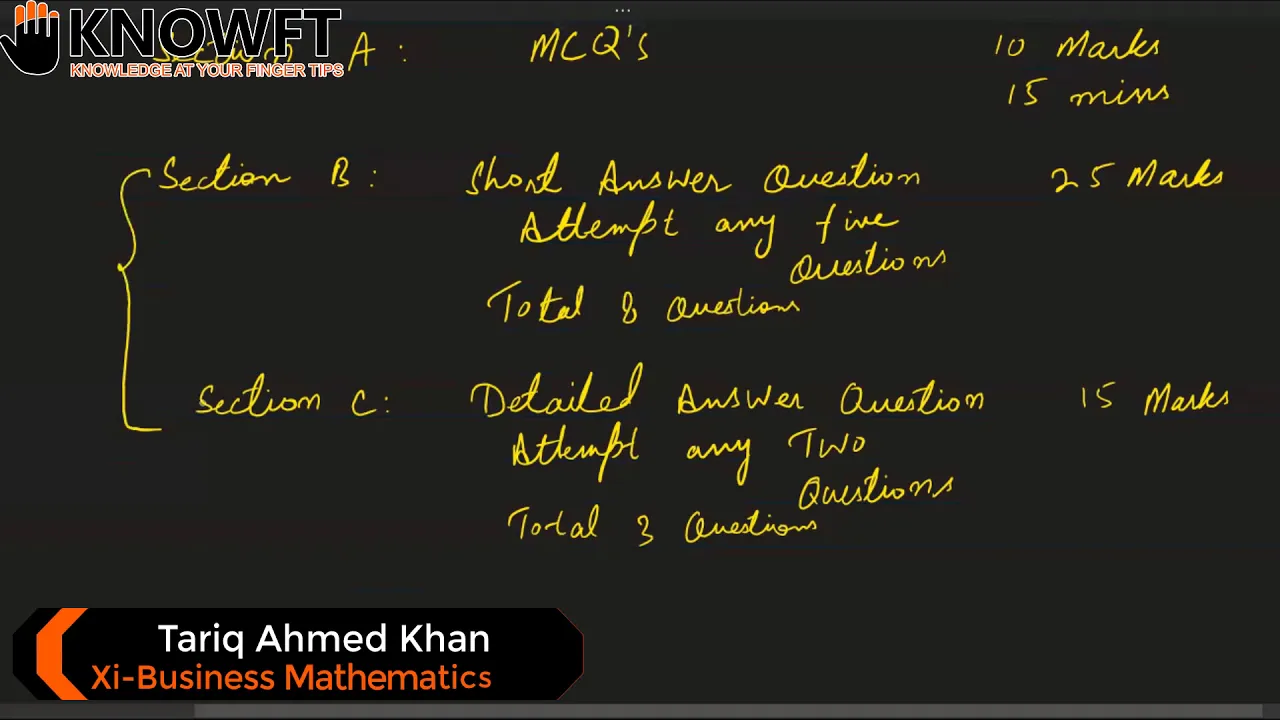 KNOWFT
KNOWLEDGE AT YOUR FINGER TIPS
Section A : MCQ's 10 Marks
15 mins
Section B : Short Answer Question 25 Marks
Attempt any five
Questions
Total 8 Questions
Section C : Detailed Answer Question 15 Marks
Attempt any Two
Questions
Total 3 Questions
Tariq Ahmed Khan
Xi-Business Mathematics